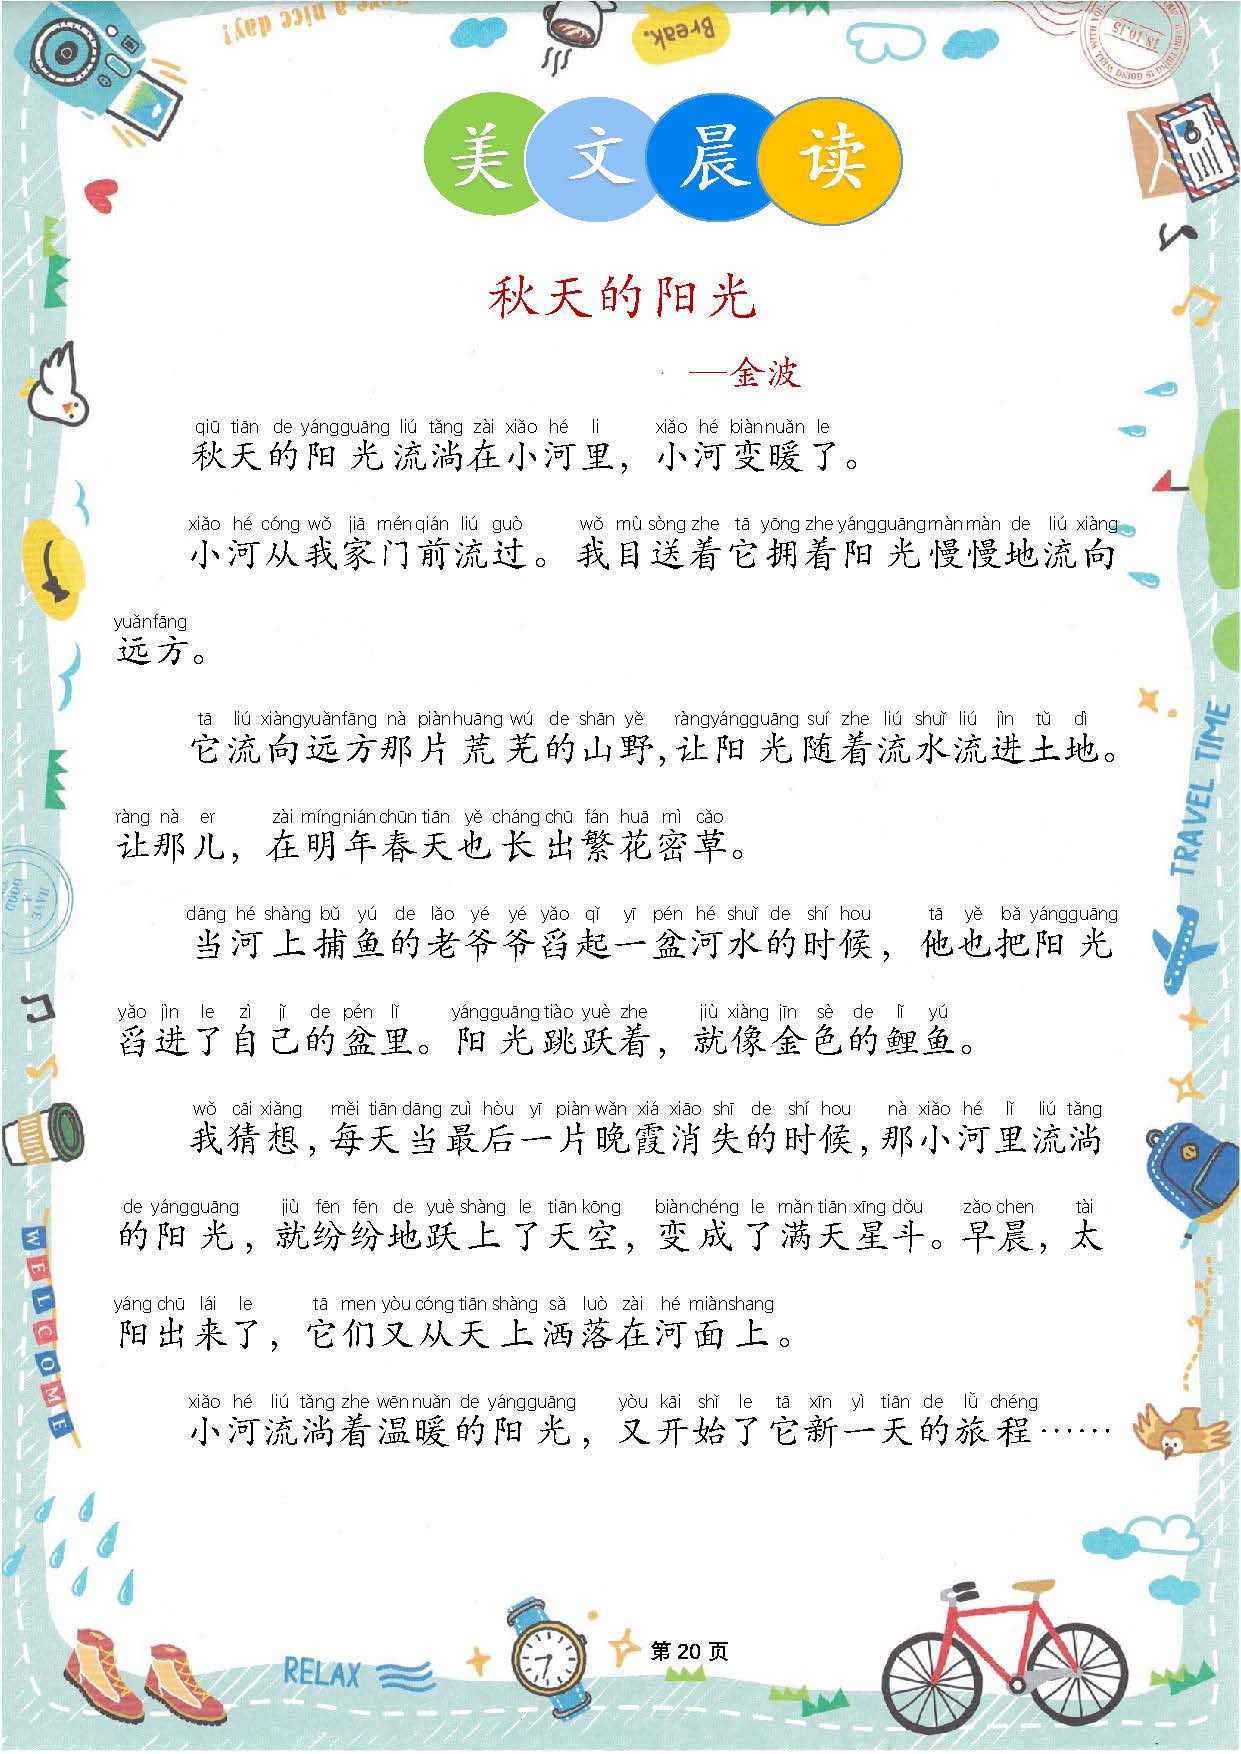 Have a nice day!
Break.
18.10.15
美文晨读
秋天的阳光
—金波
qiū tiān de yángguāng liú tǎng zài xiǎo hé li xiǎo hé biàn nuǎn le
秋天的阳光流淌在小河里，小河变暖了。
xiǎo hé cóng wǒ jiā mén qián liú guò wǒ mù sòng zhe tā yōng zhe yángguāng màn màn de liú xiàng
小河从我家门前流过。我目送着它拥着阳光慢慢地流向
yuǎnfāng
远方。
tā liú xiàngyuǎnfāng nà piànhuāng wú de shān yě ràngyángguāng suí zhe liú shuǐ liú jìn tǔ dì
它流向远方那片荒芜的山野,让阳光随着流水流进土地。
ràng nà er zài míngnián chūn tiān yě cháng chū fán huā mì cǎo
让那儿，在明年春天也长出繁花密草。
dāng hé shàng bǔ yú de lǎo yé yé yǎo qǐ yī pén hé shuǐ de shí hou tā yě bǎ yángguāng
当河上捕鱼的老爷爷舀起一盆河水的时候，他也把阳光
yǎo jìn le zì jǐ de pén lǐ yángguāng tiào yuè zhe jiù xiàng jīn sè de lǐ yú
舀进了自己的盆里。阳光跳跃着，就像金色的鲤鱼。
wǒ cāi xiǎng měi tiān dāng zuì hòu yī piàn wǎn xiá xiāo shī de shí hou nà xiǎo hé lǐ liú tǎng
我猜想,每天当最后一片晚霞消失的时候,那小河里流淌
de yángguāng jiù fēn fēn de yuè shàng le tiān kōng biàn chéng le mǎn tiān xīng dǒu zǎo chen tài
的阳光，就纷纷地跃上了天空，变成了满天星斗。早晨，太
yáng chū lái le tā men yòu cóng tiān shàng sǎ luò zài hé miànshang
阳出来了，它们又从天上洒落在河面上。
xiǎo hé liú tǎng zhe wēn nuǎn de yángguāng yòu kāi shǐ le tā xīn yì tiān de lǚ chéng
小河流淌着温暖的阳光，又开始了它新一天的旅程……
TRAVEL TIME
WELCOME
RELAX
第 20 页